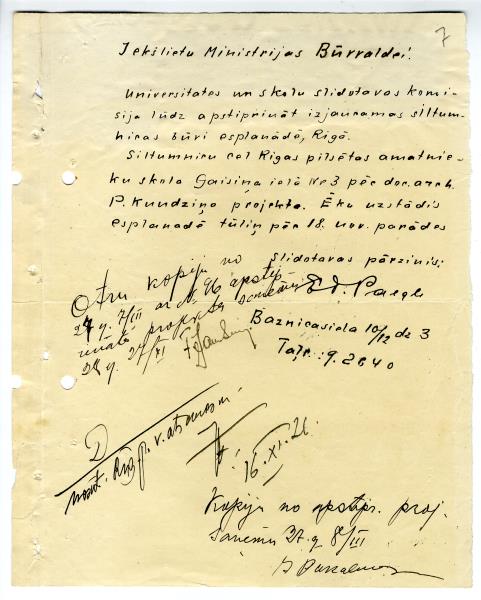 7
Iekšlietu Ministrijas Būvvaldei!
Universitates un skolu slidotavas komi-
sija lūdz apstiprināt izjauramas siltum-
nicas būvi esplanādē, Rīgā.
Siltumnicu cel Rīgas pilsētas amatnie-
ku skola Gaisiņa ielā № 3 pēc doc. arch.
P. Kundziņa projekta. Ēku uzstādīs
esplanadē tūliņ pēc 18. nov. parādes
Slidotavas pārzinis:
Ed. Paegle
Baznicasiela 10/12 dz 3
Talr. 9.2840
Otru kopiju no
27 g. 7/III ar № 96 apstip
rinatā projekta saņēmu
28 g. 24/XI
D
16.XI.26.
Kopiju no apstipr. proj.
saņēmu 27. g 8/III